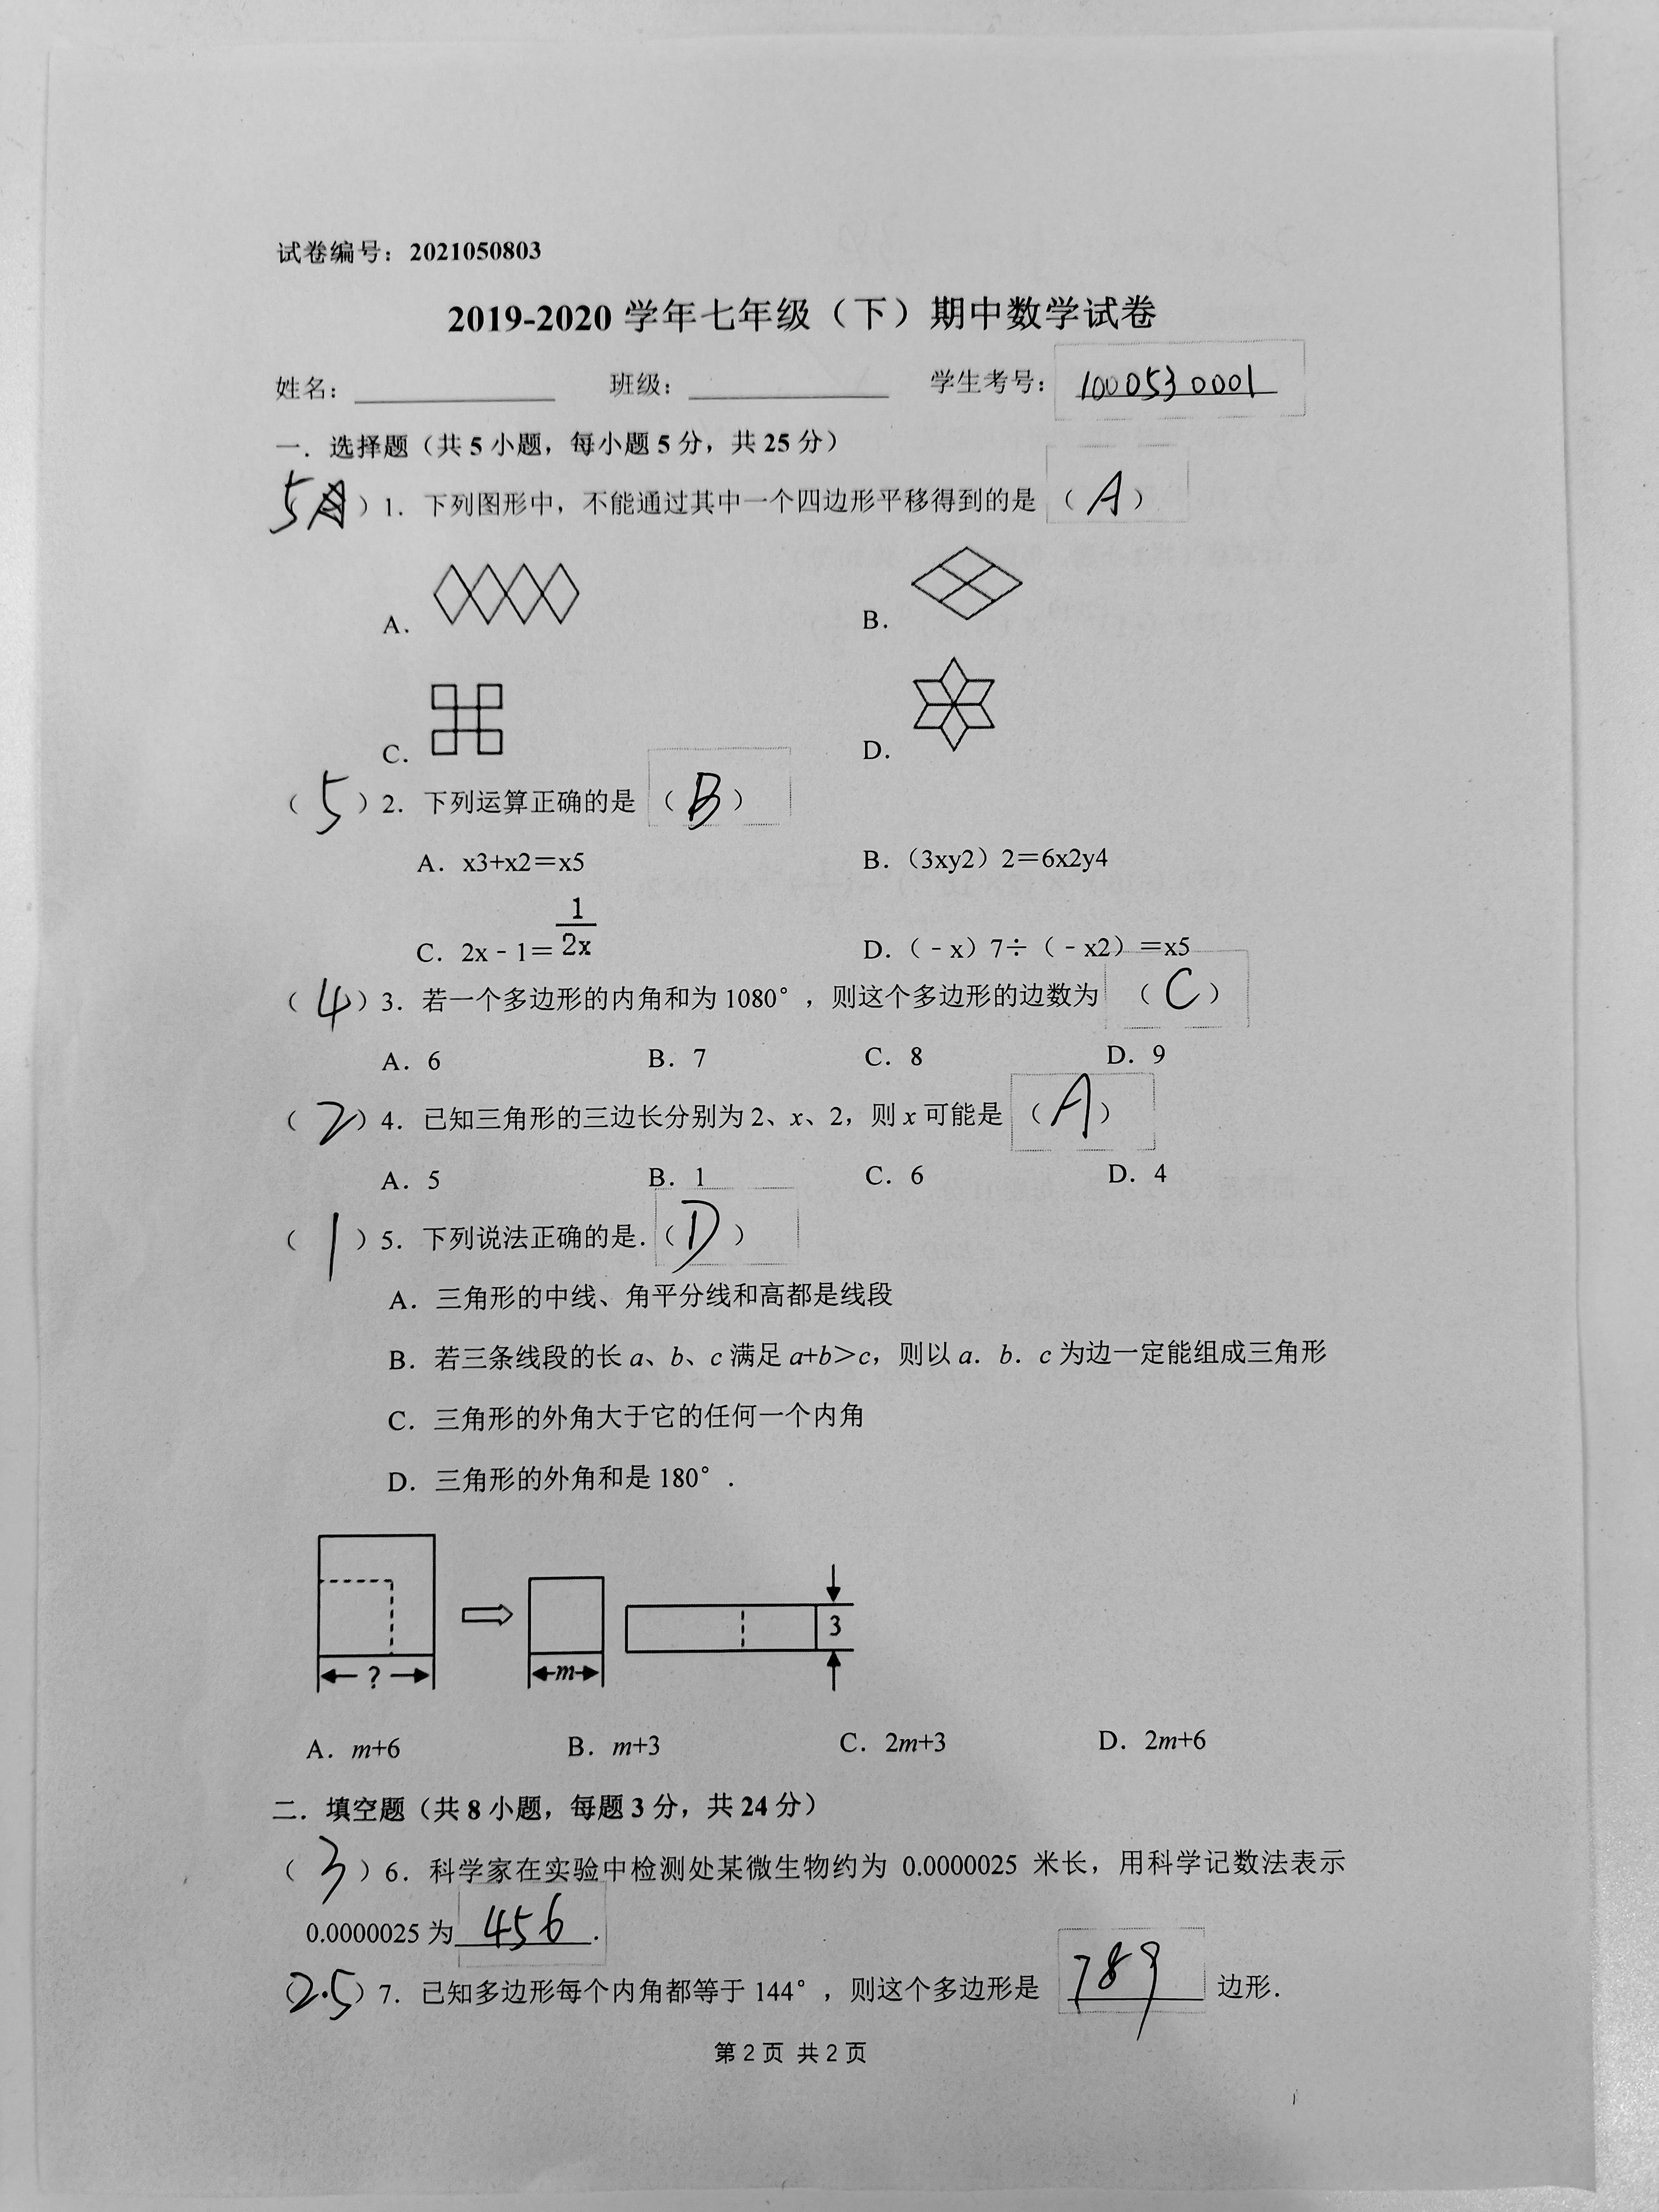 试卷编号：2021050803
2019-2020 学年七年级（下）期中数学试卷
姓名： 班级： 学生考号： 1000530001
一．选择题（共 5 小题，每小题 5 分，共 25 分）
5 ）1．下列图形中，不能通过其中一个四边形平移得到的是 （ A ）
A． B．
C． D．
（ 5 ）2．下列运算正确的是 （ B ）
A．x3+x2＝x5 B．（3xy2）2＝6x2y4
C．2x﹣1＝1/2x D．（﹣x）7÷（﹣x2）＝x5
（ 4 ）3．若一个多边形的内角和为 1080°，则这个多边形的边数为 （ C ）
A．6 B．7 C．8 D．9
（ 2 ）4．已知三角形的三边长分别为 2、x、2，则 x 可能是 （ A ）
A．5 B．1 C．6 D．4
（ 1 ）5．下列说法正确的是．（ D ）
A．三角形的中线、角平分线和高都是线段
B．若三条线段的长 a、b、c 满足 a+b＞c，则以 a．b．c 为边一定能组成三角形
C．三角形的外角大于它的任何一个内角
D．三角形的外角和是 180°．
? m 3
A．m+6 B．m+3 C．2m+3 D．2m+6
二．填空题（共 8 小题，每题 3 分，共 24 分）
（ 3 ）6．科学家在实验中检测处某微生物约为 0.0000025 米长，用科学记数法表示
0.0000025 为 456 ．
（2.5）7．已知多边形每个内角都等于 144°，则这个多边形是 789 边形．
第 2 页 共 2 页